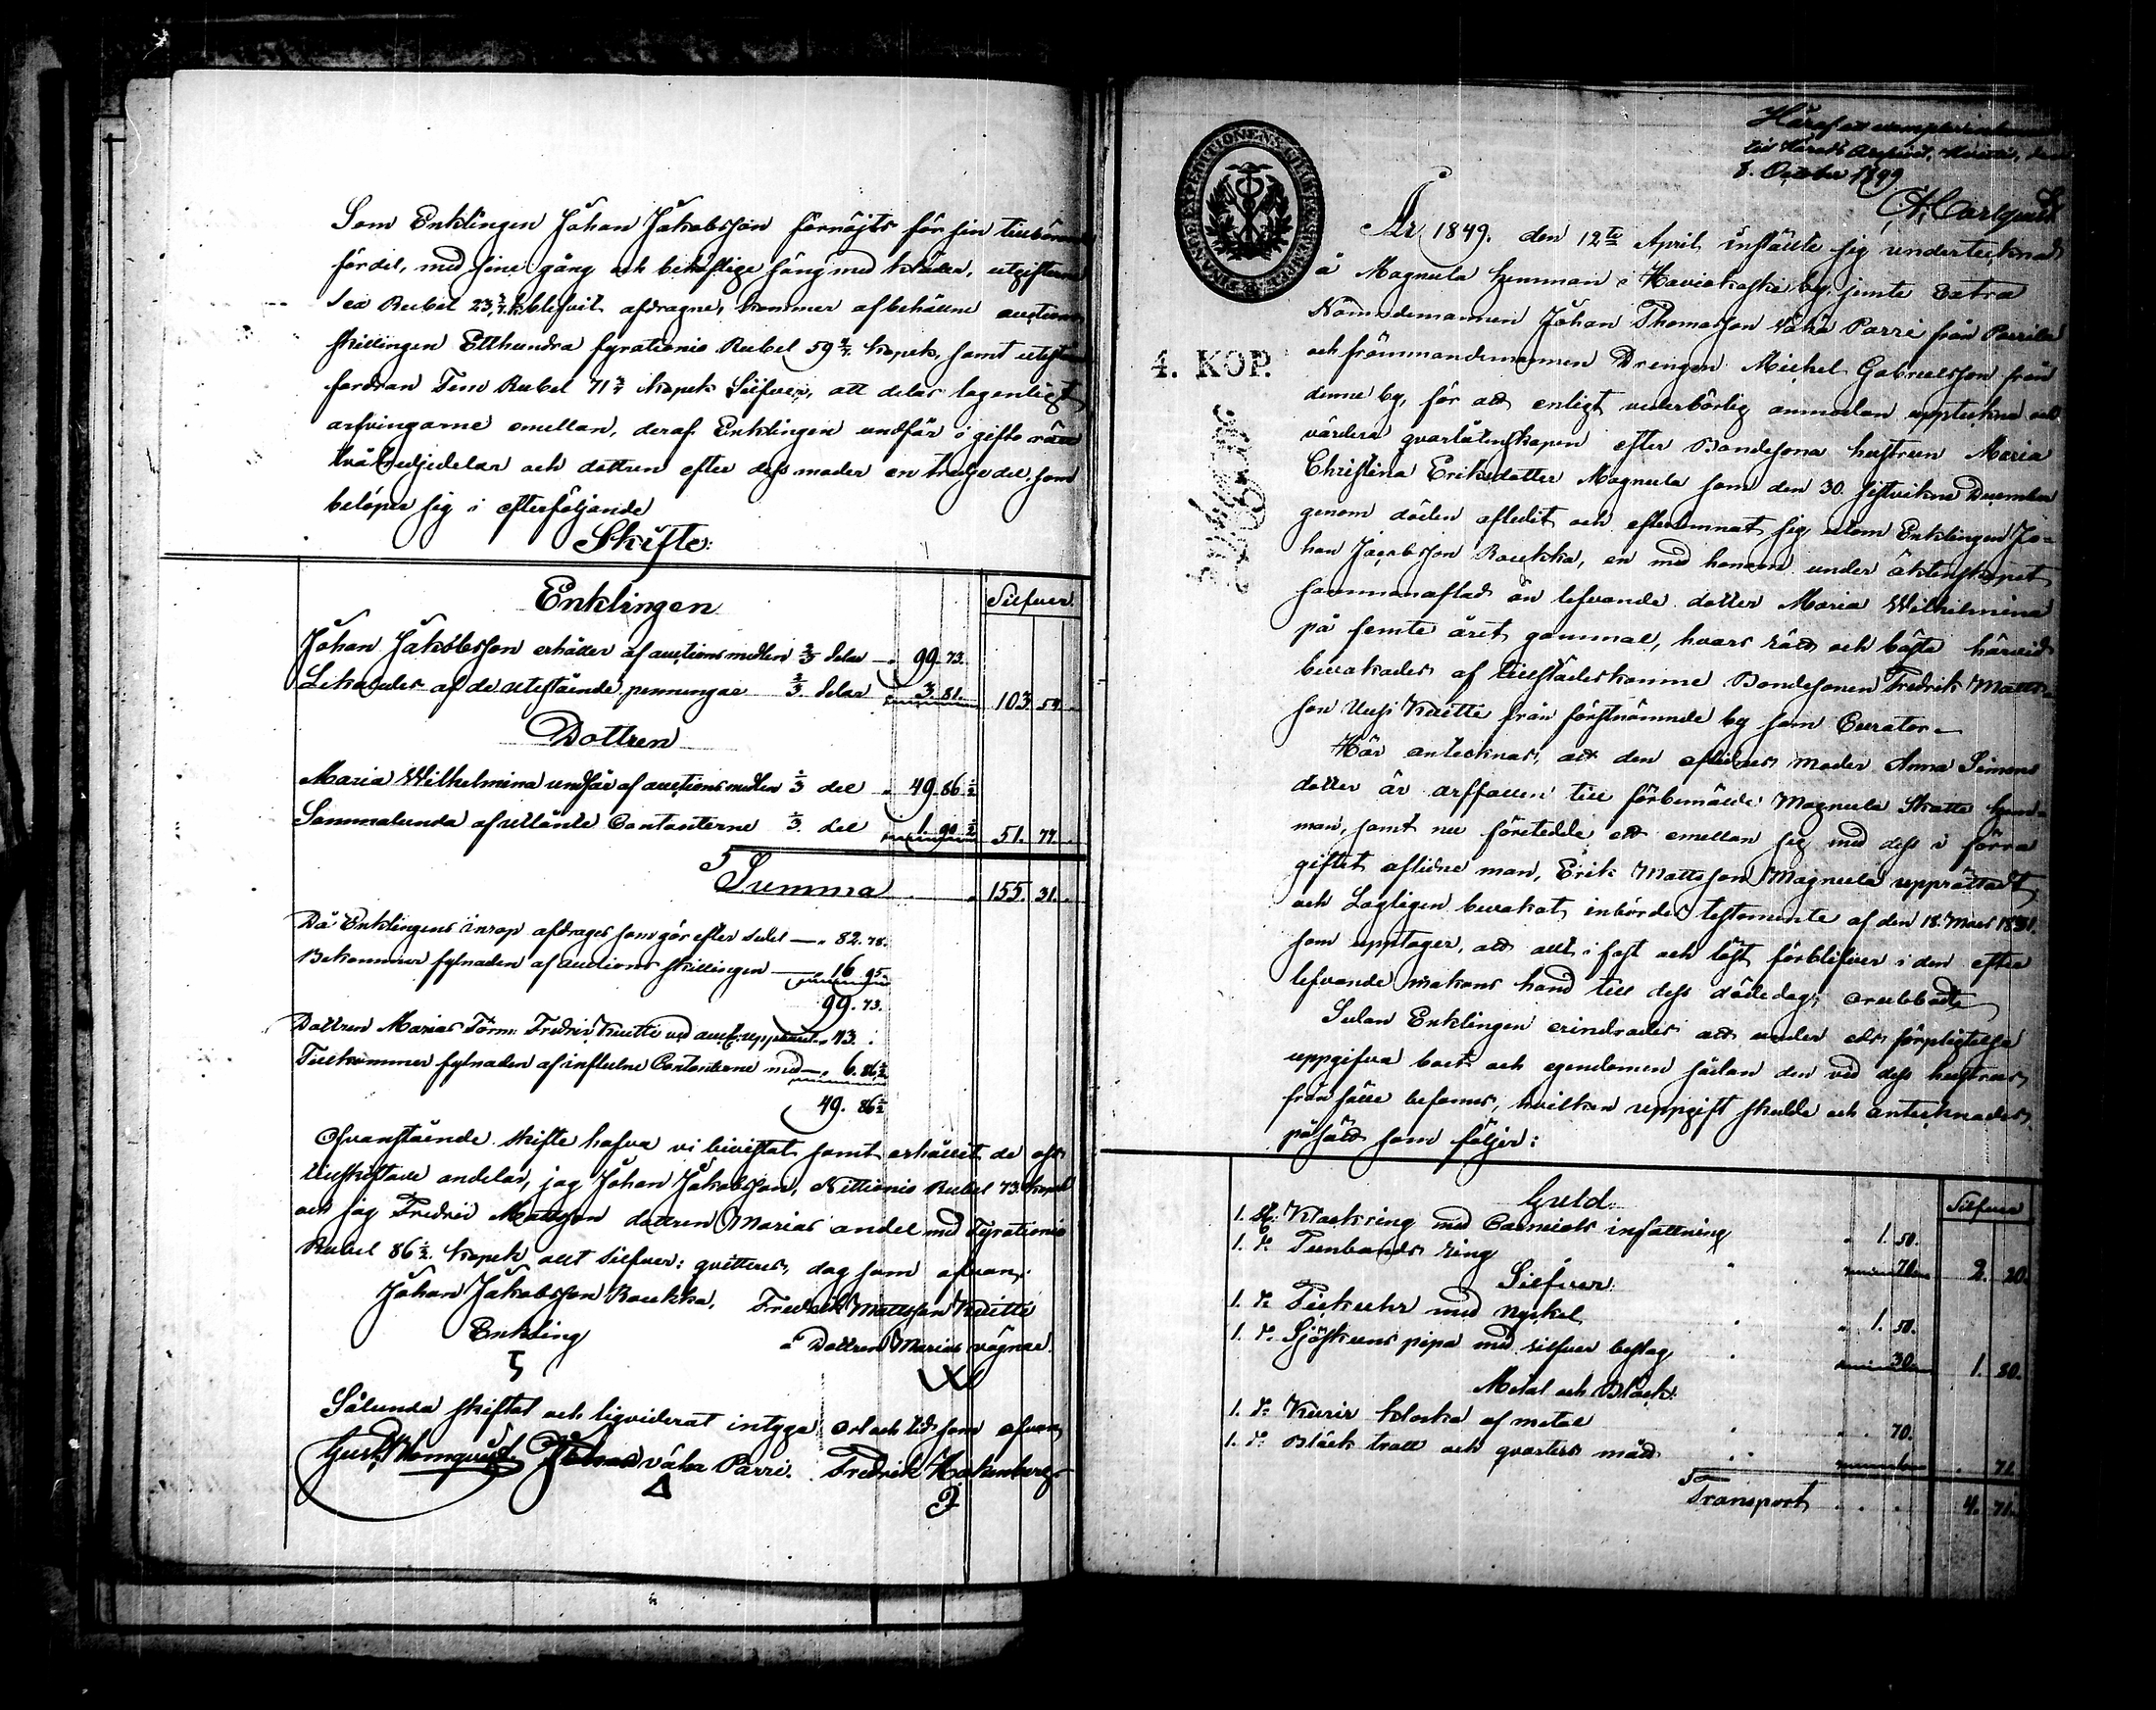 Som Enklingen Johan Jakobsson förnöjts för sin
fördel, med sine gång och behöflige säng med kläder, utgifterne
Sex Rubel 23 blefvit afdragne, kommer afbehållne auctions
skillingen Etthundra fyrationio Rubel 59 kopek, samt utestående
fordran Fem Rubel 71 kopek Silfver, att delas lagenligt
arfvingarne emellan, deraf Enklingen undfår i gifto rätt
två tredjedelar och dottren efter dess moder en tredje del, som
beløper sig i efterföljande
Skifte:
Enklingen
Silfver
Johan Jakobsson erhåller af auctions medlen 2/3 delar — 99. 73.
Likaledes af de utestående penningar 2/3 delar 3. 81. 103 54.
Dottren
Maria Wilhelmina undfår af auctions medlen 1/3 del 49. 86 1/2
Sammalunda af utlånte Contanterne 1/3 del 1. 90 1/2 51. 77.
Summa 155. 31.
Då Enklingens inrop afdrages som gör efter sedel — 82. 78.
Bekommer fylnaden af auctions skillingen — 16 95.
99. 73.
Dottren Marias Förm: Fredrik Kuitti ved auct: uppburit 43.
Tillkommer fylnaden af influtne Contanterne med — 6. 86 1/2
49. 86 1/2
Ofvanstående skifte hafva vi bivistat samt erhållit de oss
tillskiftade andelar, jag Johan Jakobsson, Nittionio Rubel 73. kopek
och jag Fredric Mattsson dottren Marias andel med Fyrationio
Rubel 86 1/2. kopek allt Silfver: qvitteres, dag som ofvan.
Johan Jakobsson Roukka, Fredrik Mattsson Kuitti
Enkling å Dottren Marias vägnar.
Sålunda skiftat och liqviderat intyga, Ort och tid som ofvan
Gust: Blomquist. Johan vähä Parri. Fredrik Hakenberg
Häraf ett exemplar
till Härads Archivet,
8. October 1849
4. KOP.
År 1849. den 12te April, instälte sig undertecknad
å Magnula hemman i Haviokoski by, jemte Extra
Nämndemannen Johan Thomasson Vähä Parri från Parrila
och främmandemannen Drengen Michel Gabrielsson från
denne by, för att enligt vederbörlig anmodan uppteckna och
värdera qvarlåtenskapen efter Bondesona hustrun Maria
Christina Eriksdotter Magnula som den 30. sistvikne December
genom döden afledit och efterlemnat sig, utom Enklingen Jo-
han Jacobsson Roukka, en med honom under äktenskapet
sammanaflad än lefvande dotter Maria Wilhelmina
på femte året gammal, hvars rätt och bästa härvid
bevakades af tillstädeskomne Bondesonen Fredrik Matts-
son Uusi Kuitti från förstnämnde by som Curator.—
Här antecknas, att den aflidnes moder Anna Simons
dotter är arffallen till förbemälde Magnula Skatte hem-
man, samt nu företedde ett emellan sig med dess i förra
giftet aflidne man, Erik Mattsson Magnula upprättadt
och Lagligen bevakat inbördes testamente af den 18. Mars 1831.
som upptager, att allt i fast och löst förblifver i den efter
lefvande makans hand till dess dödedag, orubbadt
Sedan Enklingen erindrades att under eds förpligtelse
uppgifva boet och egendomen sådan den vid dess hustrus
frånfälle befanns, hvilken uppgift skedde och antecknades,
påsätt som följer:
Guld. Silfver
1. st: Klackring med Carneols infattning 1. 50.
1. d:o Tunbands ring 70. 2. 20.
Silfver.
1. d:o Fickuhr med nyckel 1. 50.
1. d:o Sjöskums pipa med silfver beslag 30. 1. 80.
Metal och Bläck.
1. d:o Kurir klocka af metal 70.
1. d:o Bläck tratt och qvarters mått 71.
Transport 4. 71.